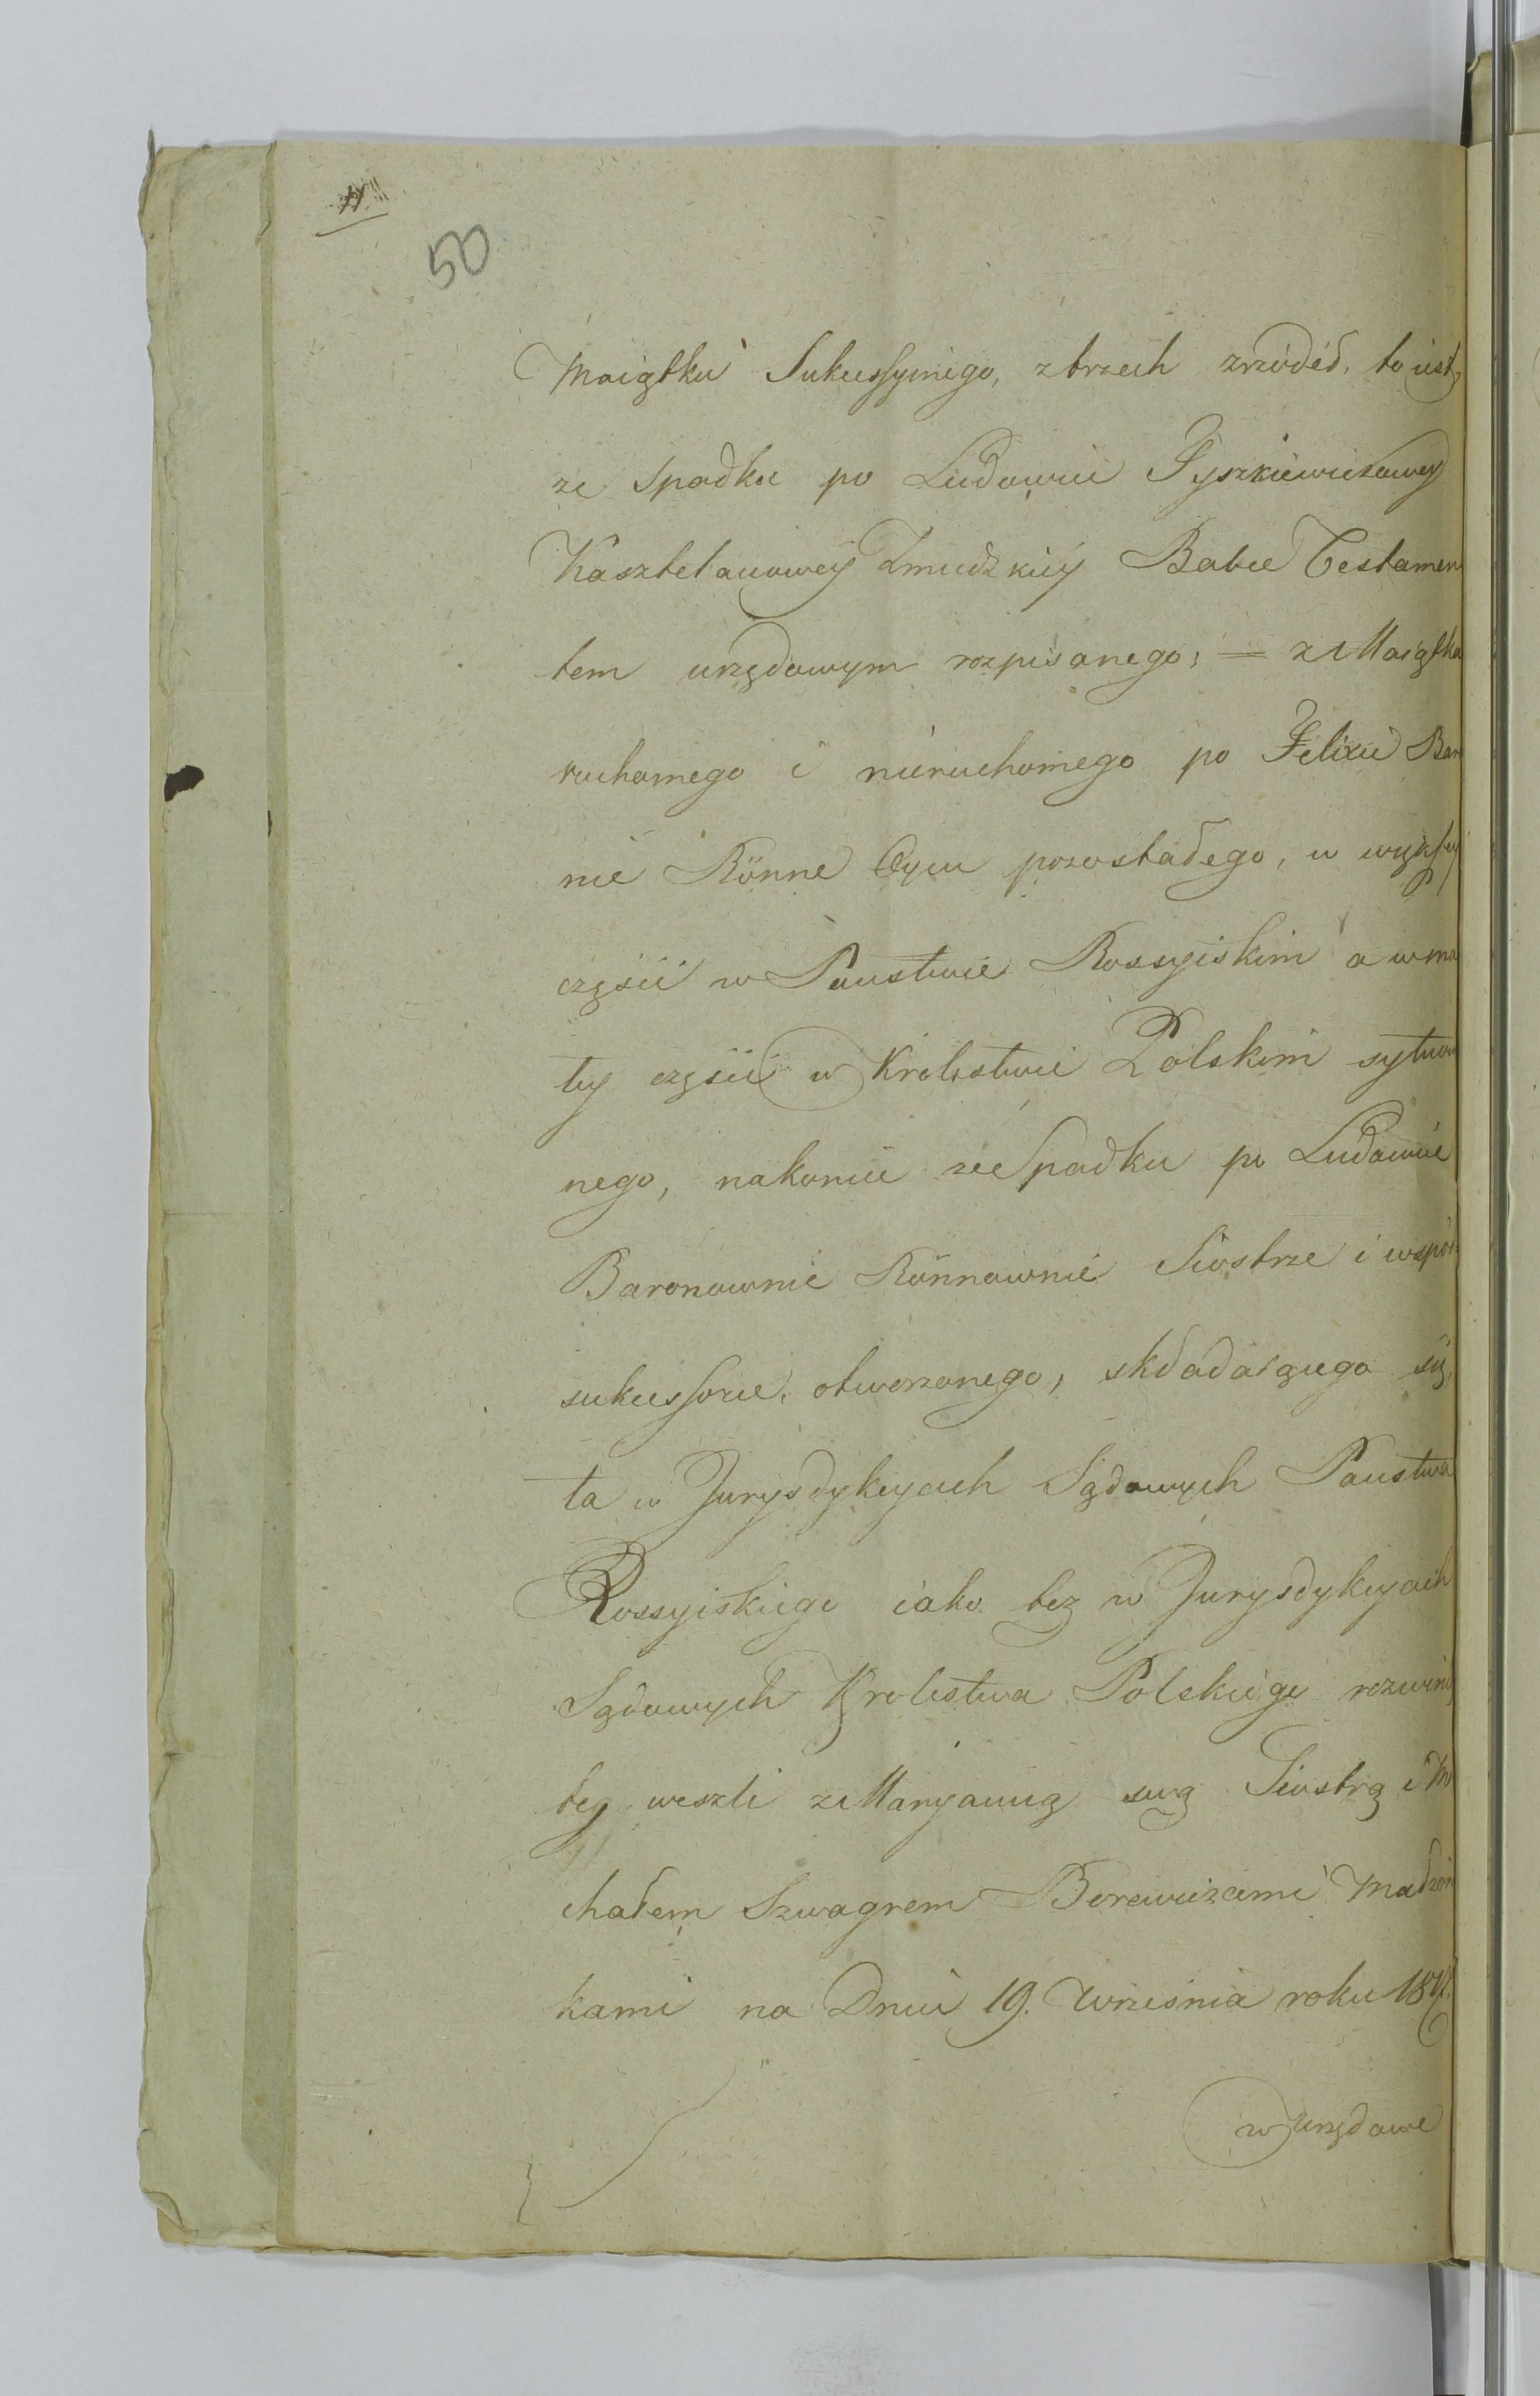 50
Maiątku Sukcessyinego, z trzech zrzódéł, to iest,
ze Spadku po Ludowice Tyszkiewiczowey
Kasztelanowey Zmudzkiéy Babce Testamen
tem urzędowym rozpisanego; = z Maiątku
ruchomego i nieruchomego po Felixie Bar
nie Rönne Oycu pozostałego, w więkſzey
częsci w Panstwie Rossyiskim a w ma
ley częsci w Krolestwie Polskim sytuow
nego, nakoniec ze Spadku po Ludowice
Baronownie Rönnownie Siostrze i wspoł
sukceſsorce, otworzonego, składaiącego się,
ta w Jurysdykcyach Sądowych Panstwa
Rossyiskiego iako tez w Jurysdykcyach
Sądowych Krolestwa Polskiego rozwinię
tey weszli z Maryanną swą Siostrą i Mi
chałem Szwagrem Borewiczami Małżon
kami na Dniu 19. Września roku
w Urzędowe